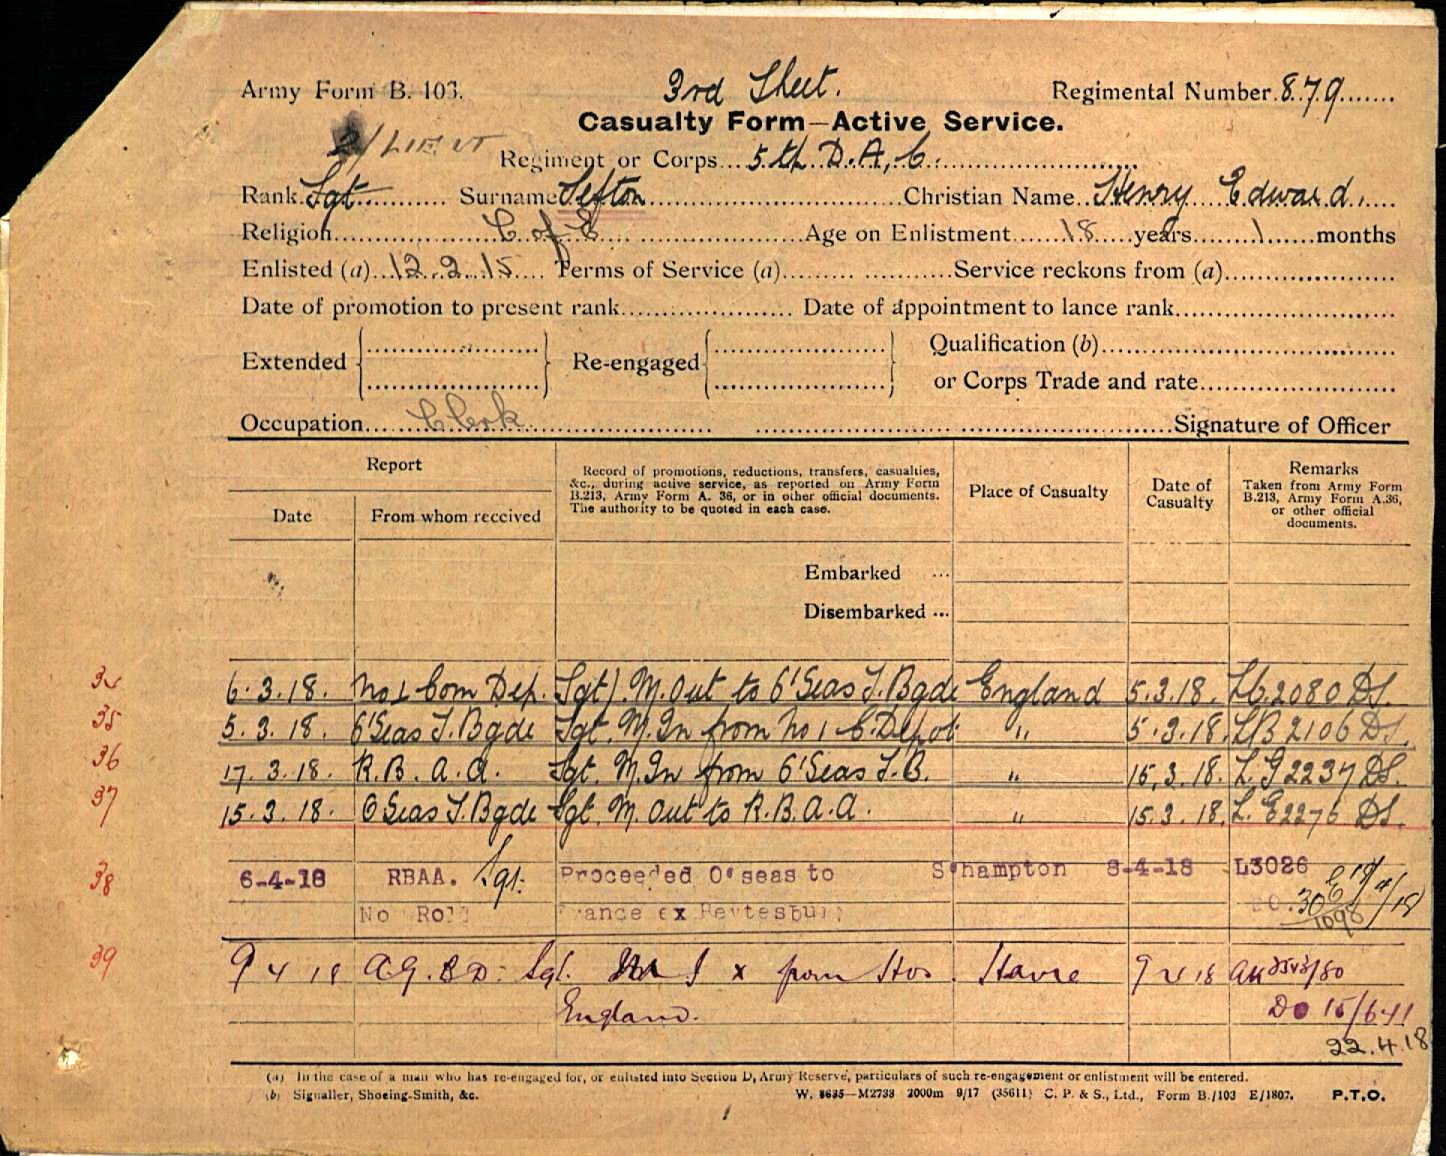 Army Form B. 103.
3rd Sheet.
Regimental Number 879
Casualty Form—Active Service.
2/LIEUT
Regiment or Corps 5th D.A.C.
Rank Sgt Surname Sefton Christian Name Henry Edward
Religion C of E Age on Enlistment 18 years 1 months
Enlisted (a) 12.2.15 Terms of Service (a) Service reckons from (a)
Date of promotion to present rank Date of appointment to lance rank
Extended Re-engaged Qualification (b)
or Corps Trade and rate
Occupation Clerk Signature of Officer
Report
Date From whom received
Record of promotions, reductions, transfers, casualties,
&c., during active service, as reported on Army Form
B.213, Army Form A. 36, or in other official documents.
The authority to be quoted in each case.
Place of Casualty
Date of
Casualty
Remarks
Taken from Army Form
B.213, Army Form A.36,
or other official
documents.
Embarked ...
Disembarked ...
34 6.3.18. No 1 Com Dep. Sgt M. Out to O'Seas T. Bgde England 5.3.18. 2080 DS.
35 5.3.18. O'Seas T. Bgde Sgt. M. In from No 1 C. Depot " 5.3.18. LB 2106 DS.
36 17.3.18. R.B.A.A. Sgt. M. In from O'Seas T.B. " 15.3.18. L.G 2237 DS.
37 15.3.18. O'Seas T. Bgde Sgt. M. Out to R.B.A.A. " 15.3.18. L.E 2276 DS.
38 6-4-18 RBAA. Sgt. Proceeded O'seas to S'hampton 8-4-18 L3026
No Roll France ex Heytesbury 30
1098
39 9 4 18 A.G.B.D. Sgt. from Hos. Havre 9 4 18
England. DO 15/641
22.4.18
(a) In the case of a man who has re-engaged for, or enlisted into Section D, Army Reserve, particulars of such re-engagement or enlistment will be entered.
(b) Signaller, Shoeing-Smith, &c. W. 8635—M2733 2000m 9/17 (35611) C. P. & S., Ltd., Form B./103 E/1807. P.T.O.